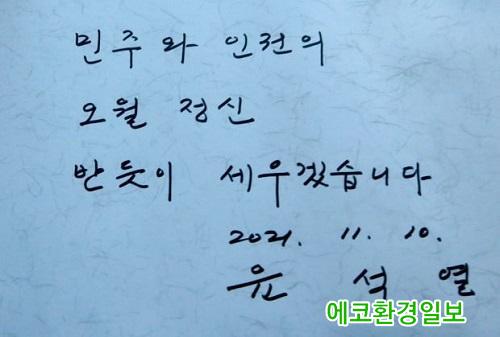 민주와 인권의
오월 정신
반듯이 세우겠습니다
2021. 11. 10.
윤 석 열
에코환경일보